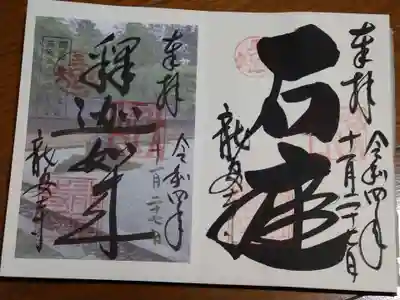 奉拝
石庭
令和四年
十一月二十七日
龍安寺
奉拝
釋迦如来
令和四年
十一月二十七日
龍安寺